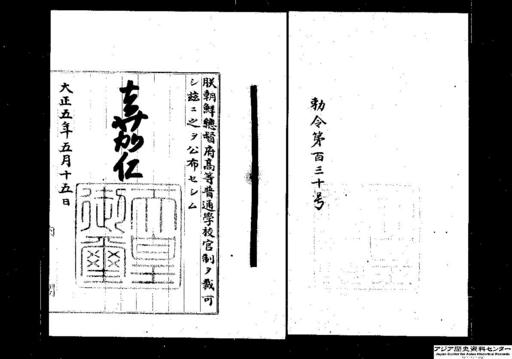 勅令第百三十号
朕朝鮮總督府高等普通學校官制ヲ裁可
シ茲ニ之ヲ公布セシム
嘉仁
天皇
御璽
大正五年五月十五日
アジア歴史資料センター
Japan Center for Asian Historical Records